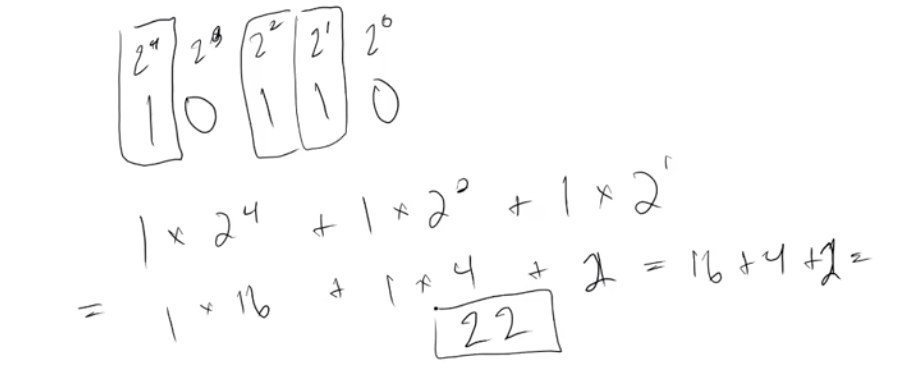 2⁴ 2³ 2² 2¹ 2⁰
1 0 1 1 0
1 × 2⁴ + 1 × 2⁰ + 1 × 2¹
= 1 × 16 + 1 × 4 + 2 = 16 + 4 + 2 =
22